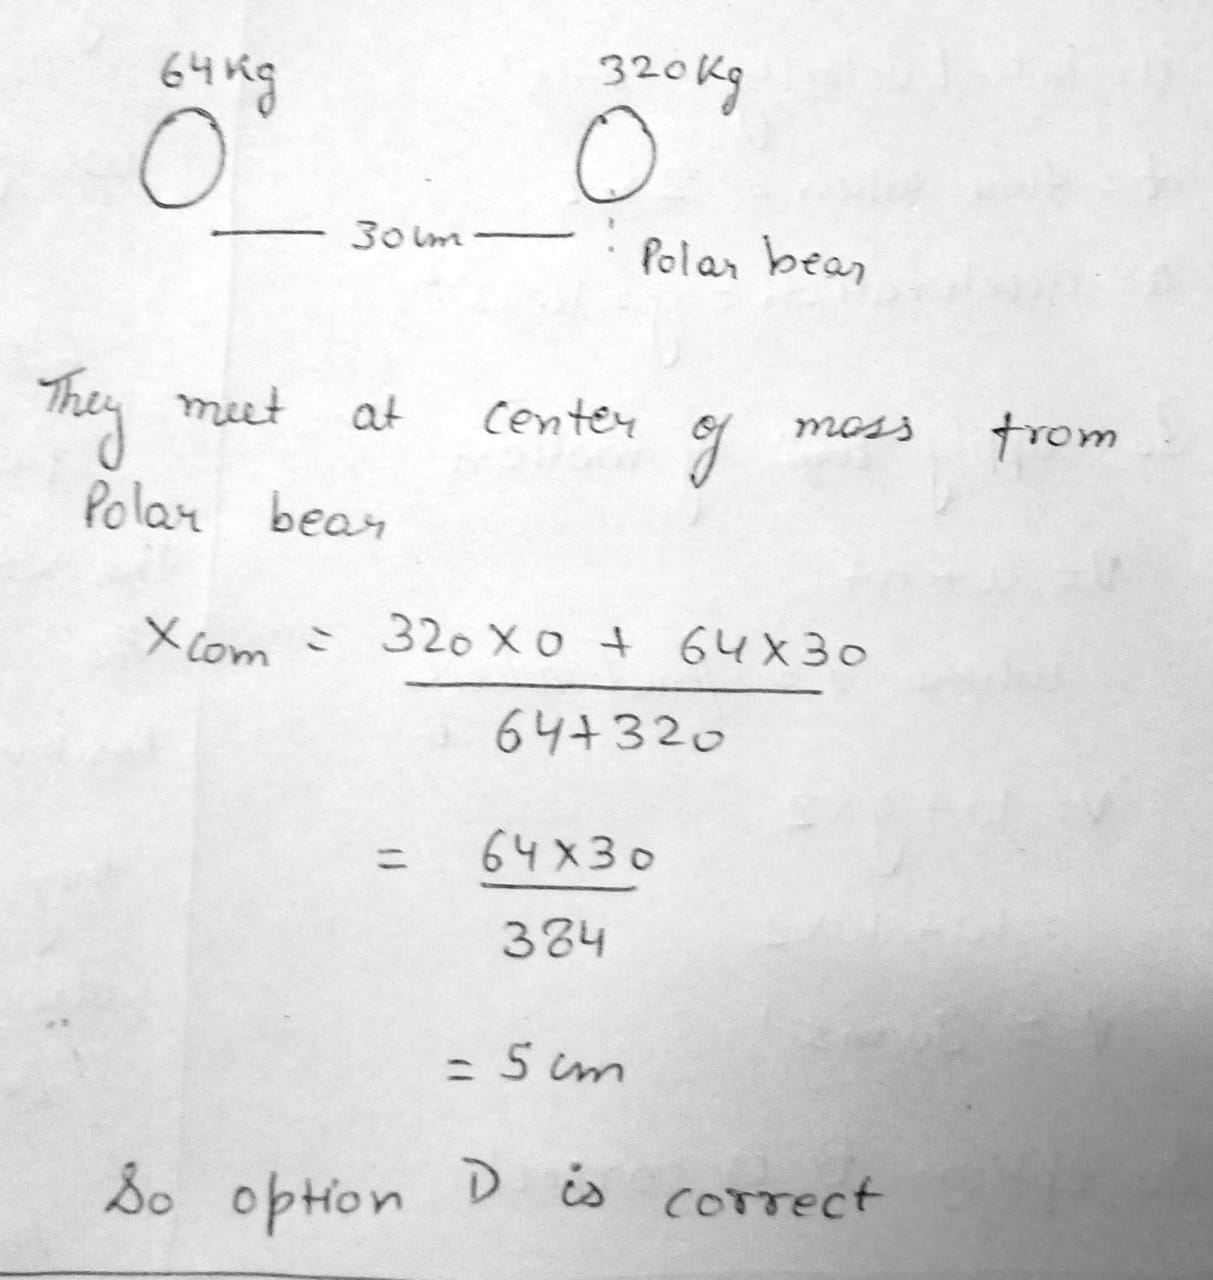 64 Kg 320 Kg
30 cm
Polar bear
They meet at center of mass from
Polar bear
Xcom = 320 X 0 + 64 X 30
64 + 320
= 64 X 30
384
= 5 cm
So option D is correct